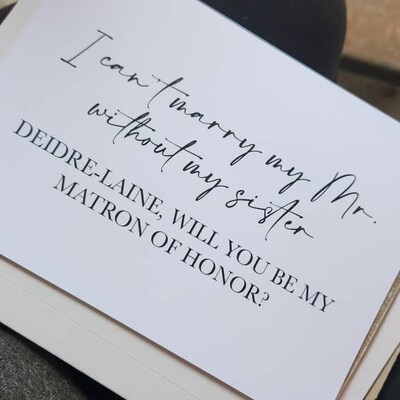 I can't marry my Mr.
without my sister
DEIDRE-LAINE, WILL YOU BE MY
MATRON OF HONOR?